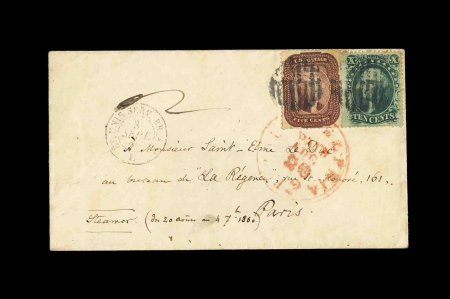 U.S. POSTAGE
FIVE CENTS
X X
TEN CENTS
A Monsieur Saint-Elme Le Duc
au bureau de "La Régence", rue St Honoré, 161,
Paris.
Steamer. (du 20 août au 4 7bre 1860)